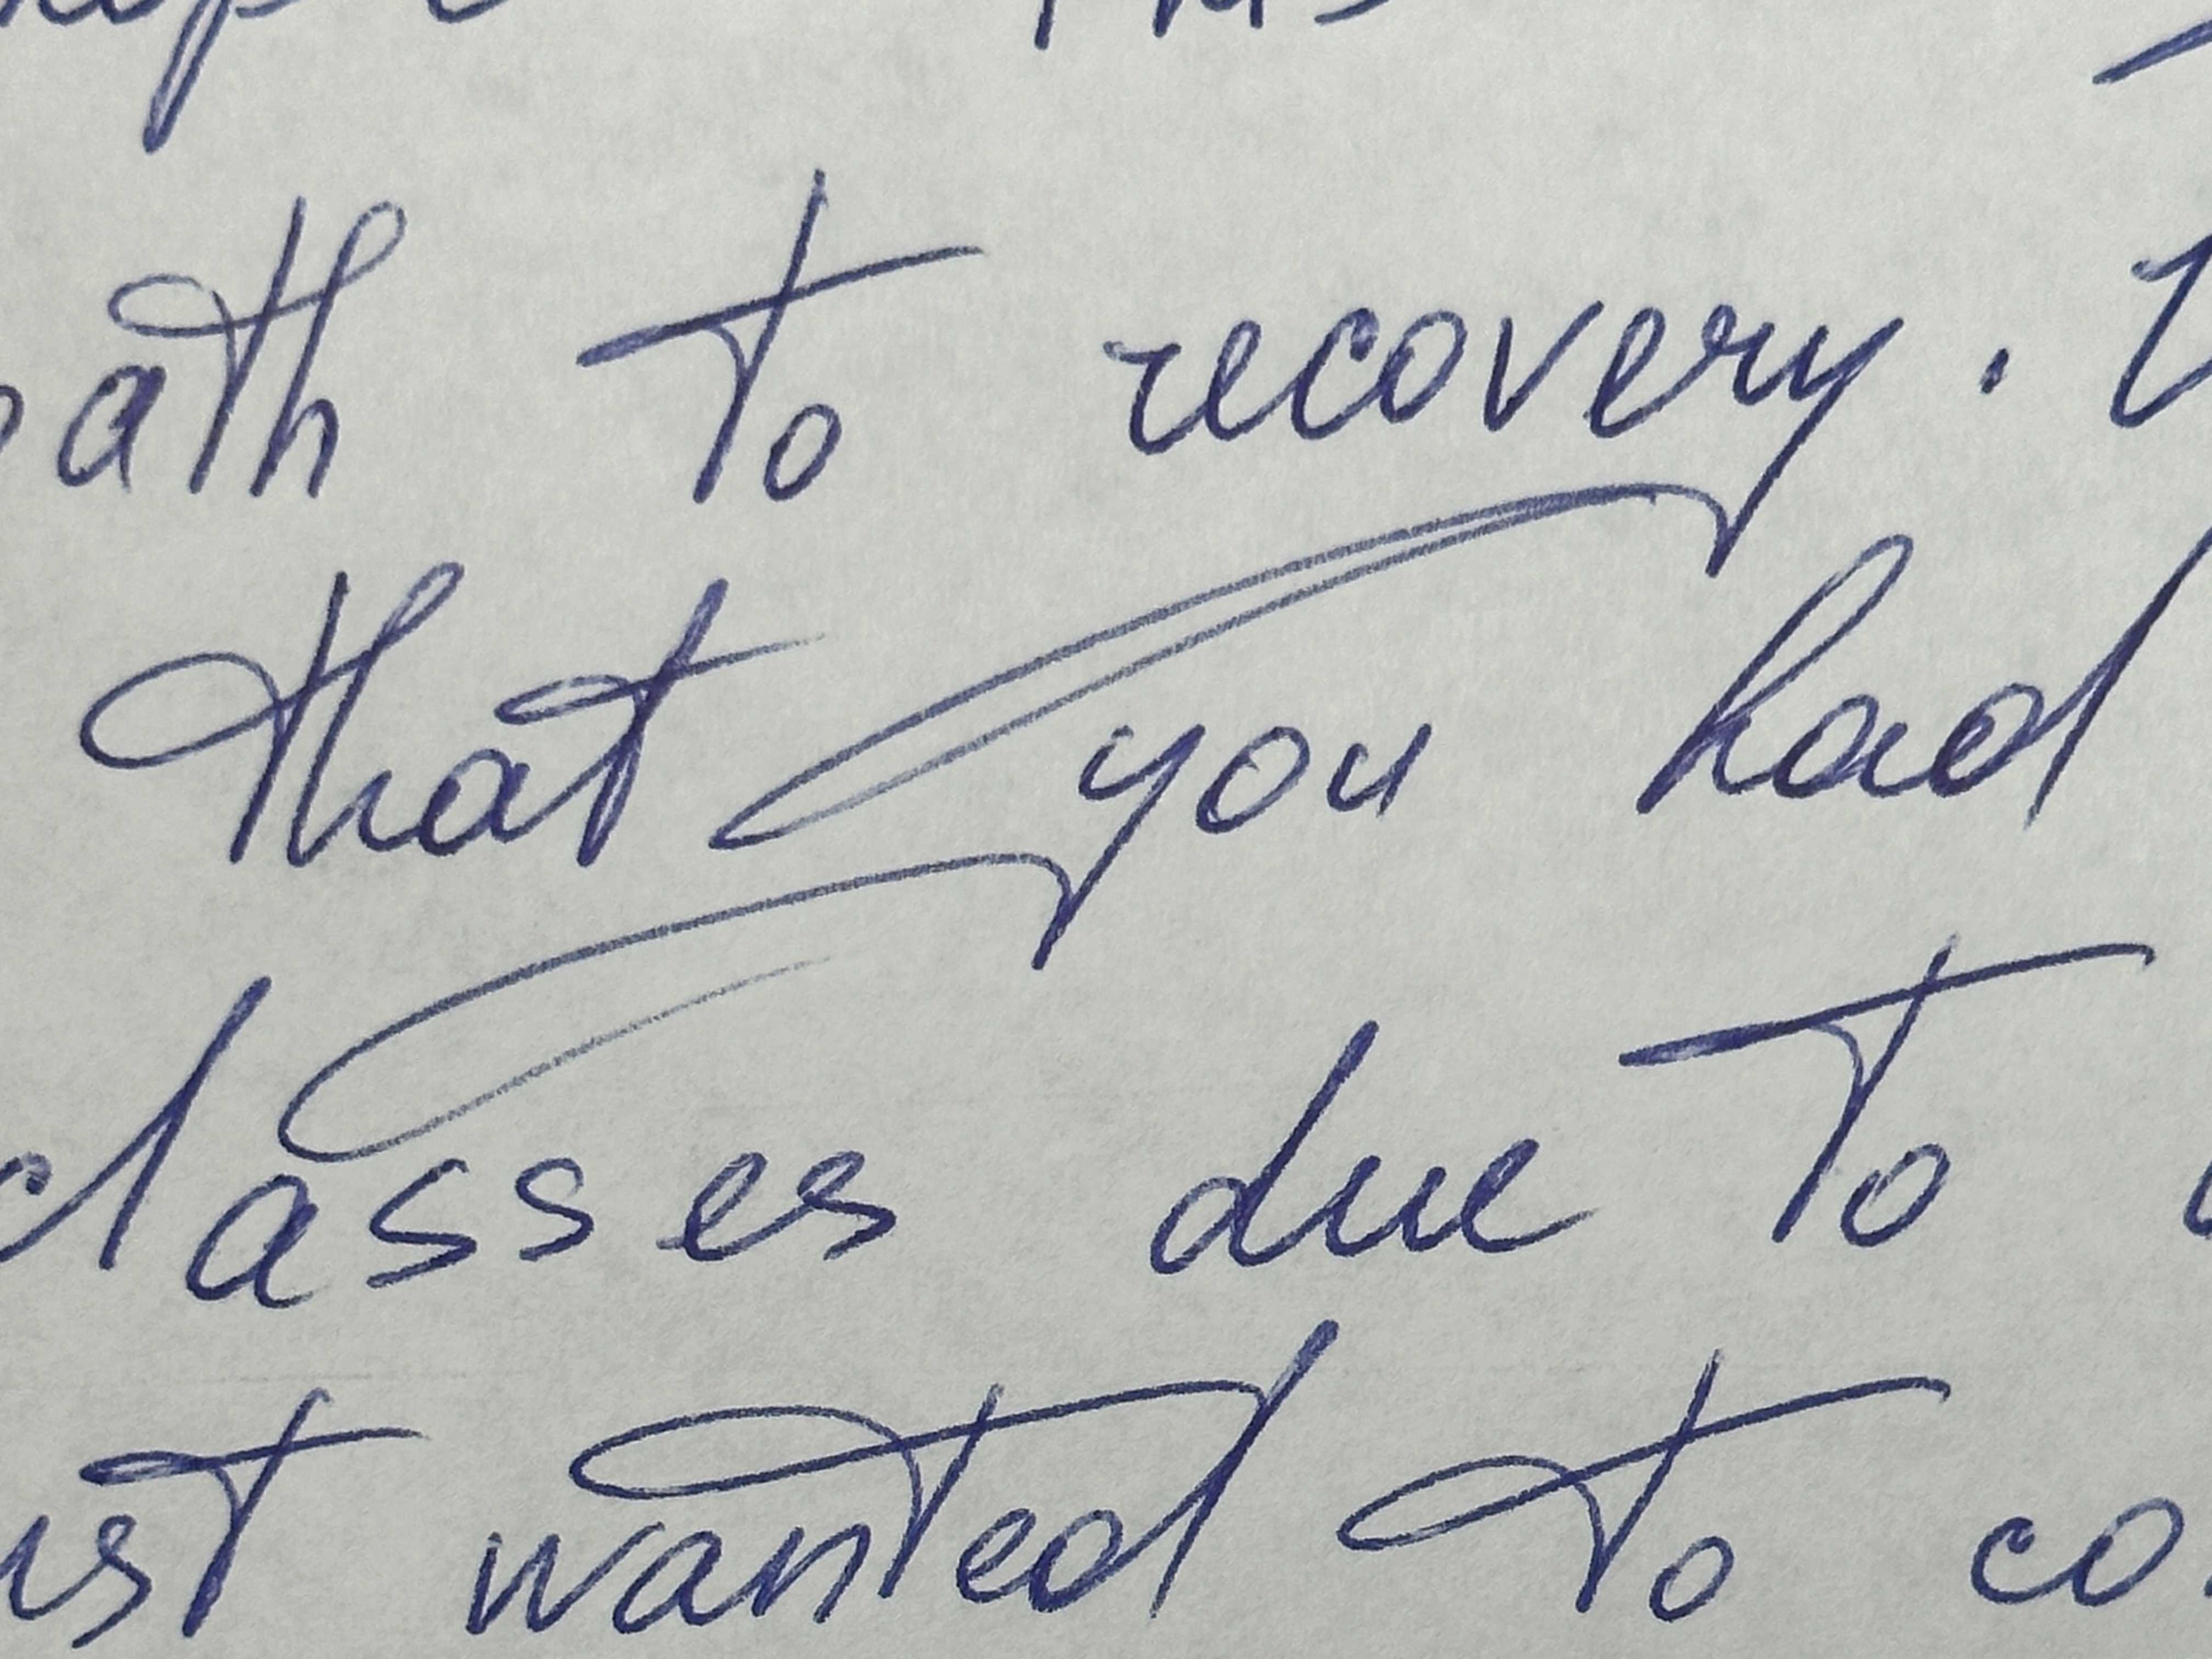 path to recovery.
that you had
classes due to
wanted to